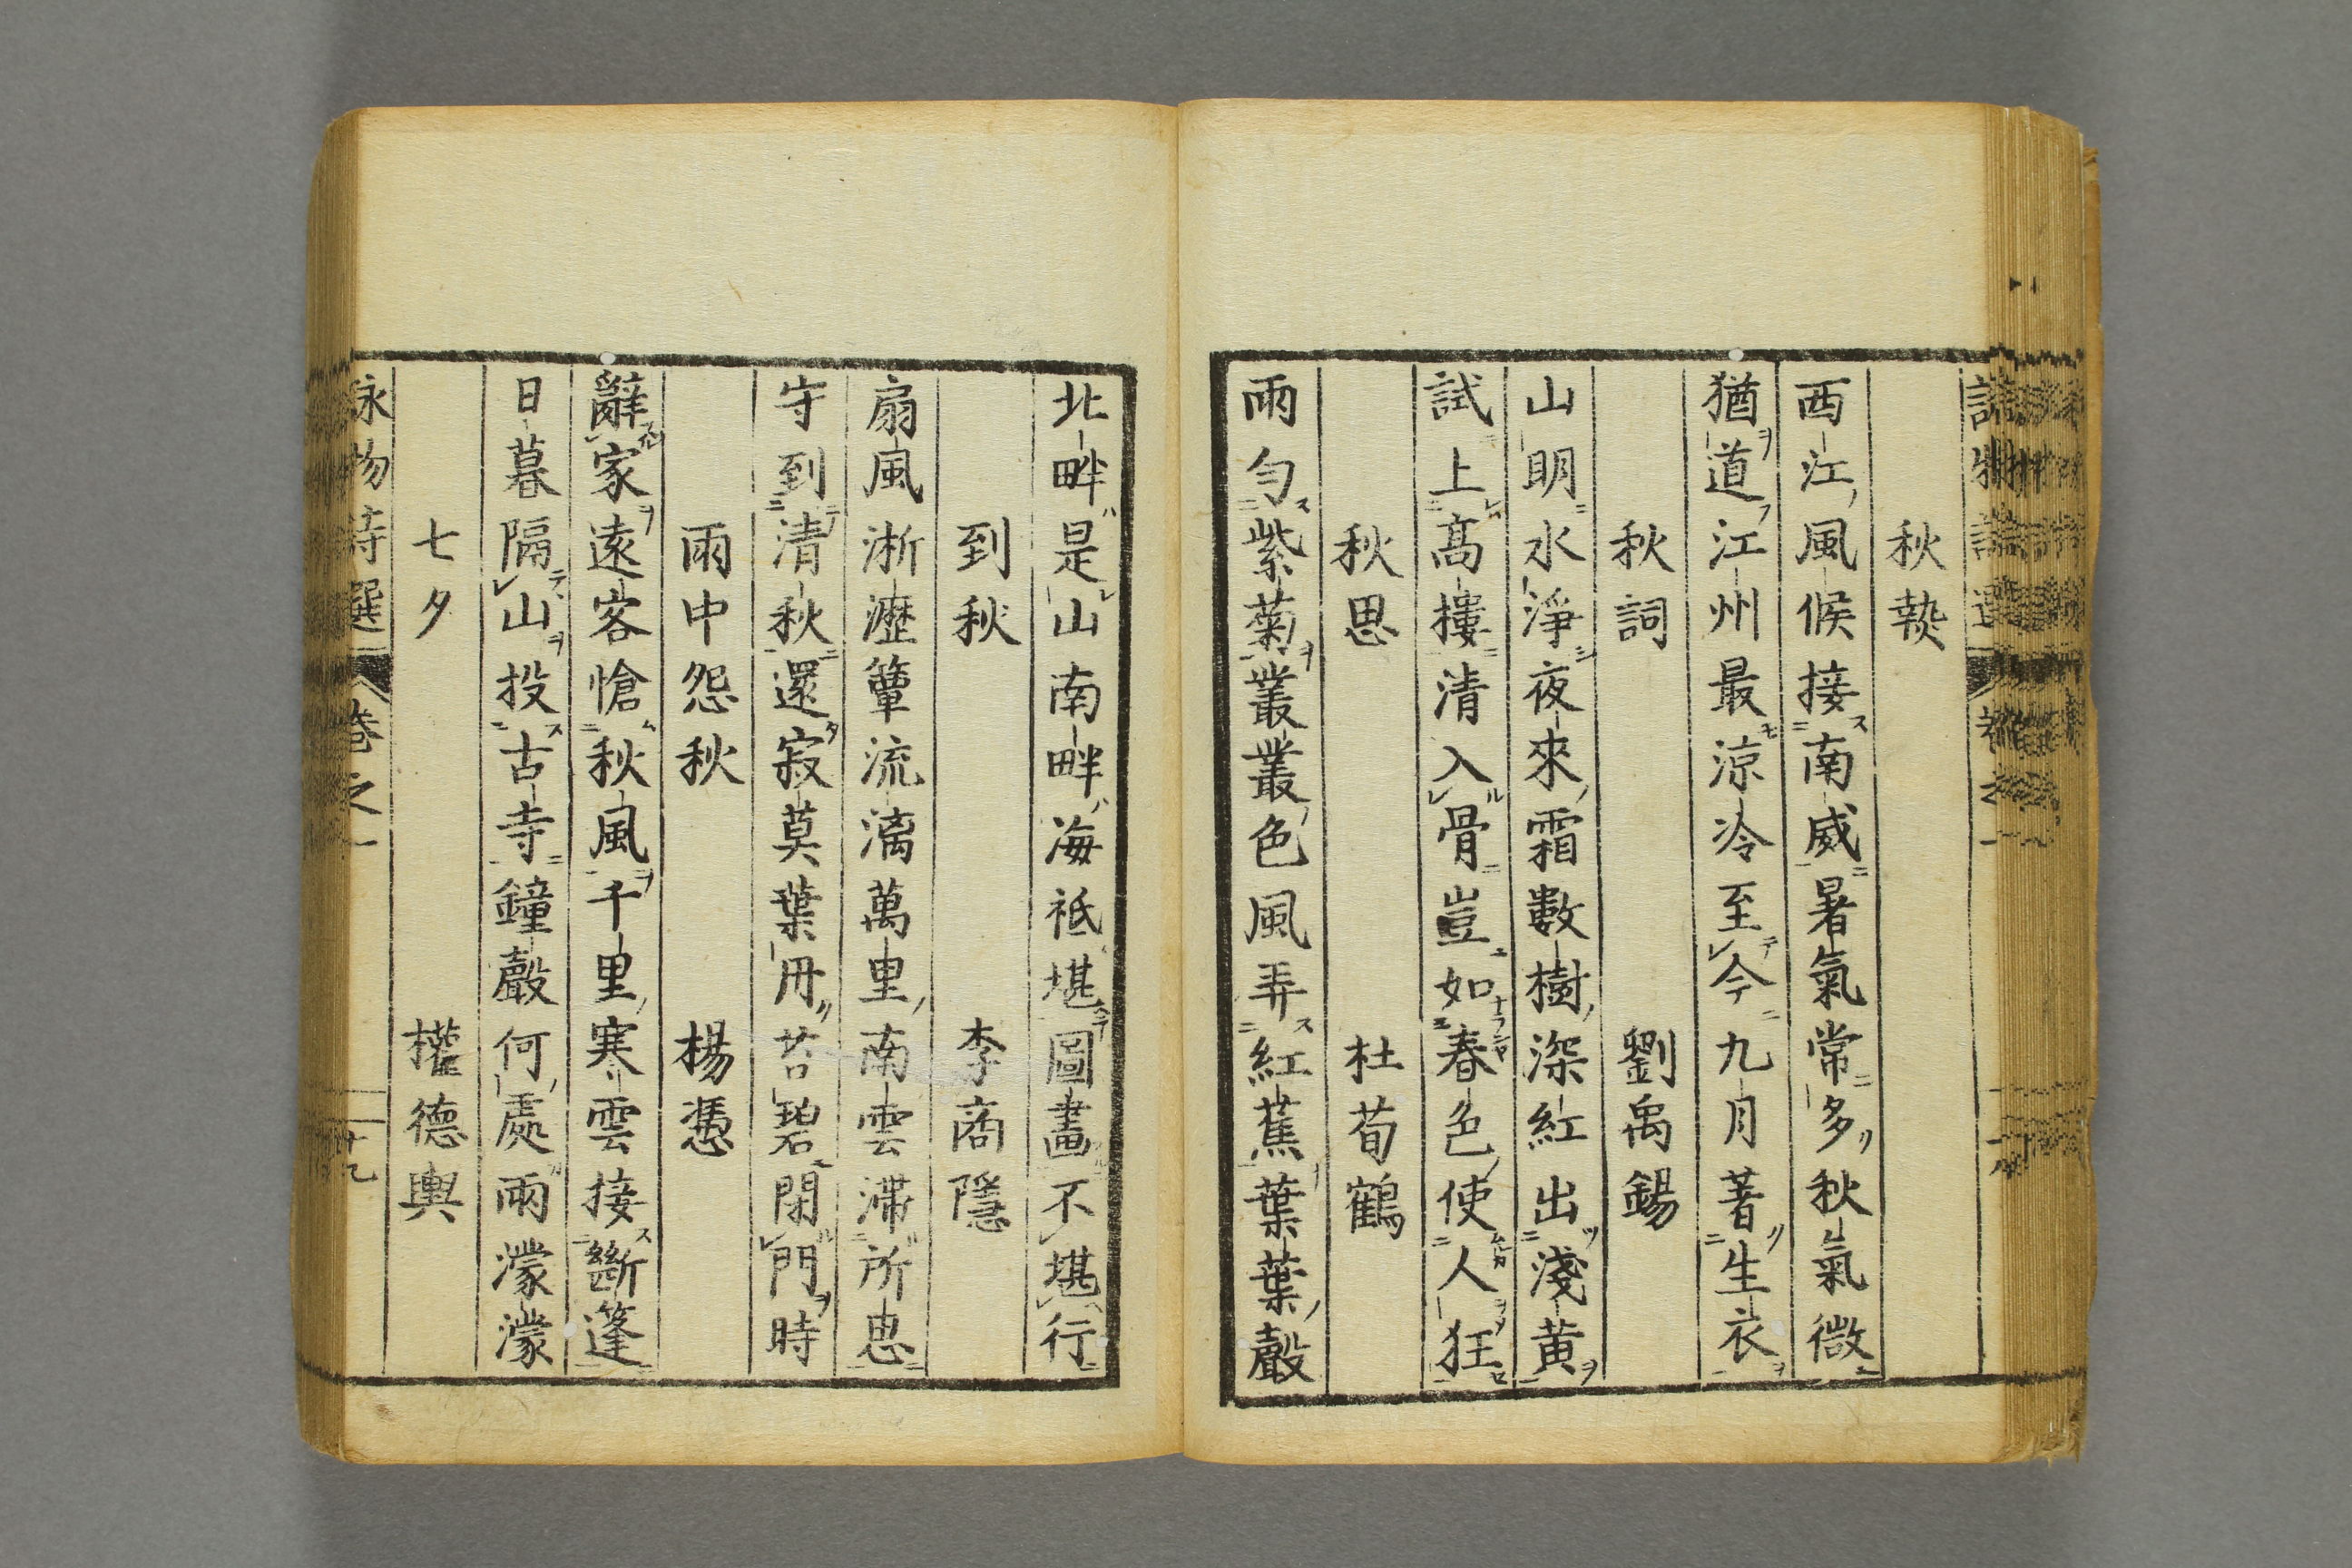 秋熱
西江風候接南威暑氣常多秋氣微
猶道江州最涼冷至今九月著生衣
秋詞　劉禹錫
山明水淨夜來霜數樹深紅出淺黄
試上高樓清入骨豈如春色使人狂
秋思　杜荀鶴
雨勻紫菊叢叢色風弄紅蕉葉葉聲
北畔是山南畔海祗堪圖畫不堪行
到秋　李商隱
扇風淅瀝簟流漓萬里南雲滯所思
守到清秋還寂莫葉丹苔碧閉門時
雨中怨秋　楊憑
辭家遠客愴秋風千里寒雲接斷篷
日暮隔山投古寺鐘聲何處雨濛濛
七夕　權德輿
咏物詩選　卷之一　十九